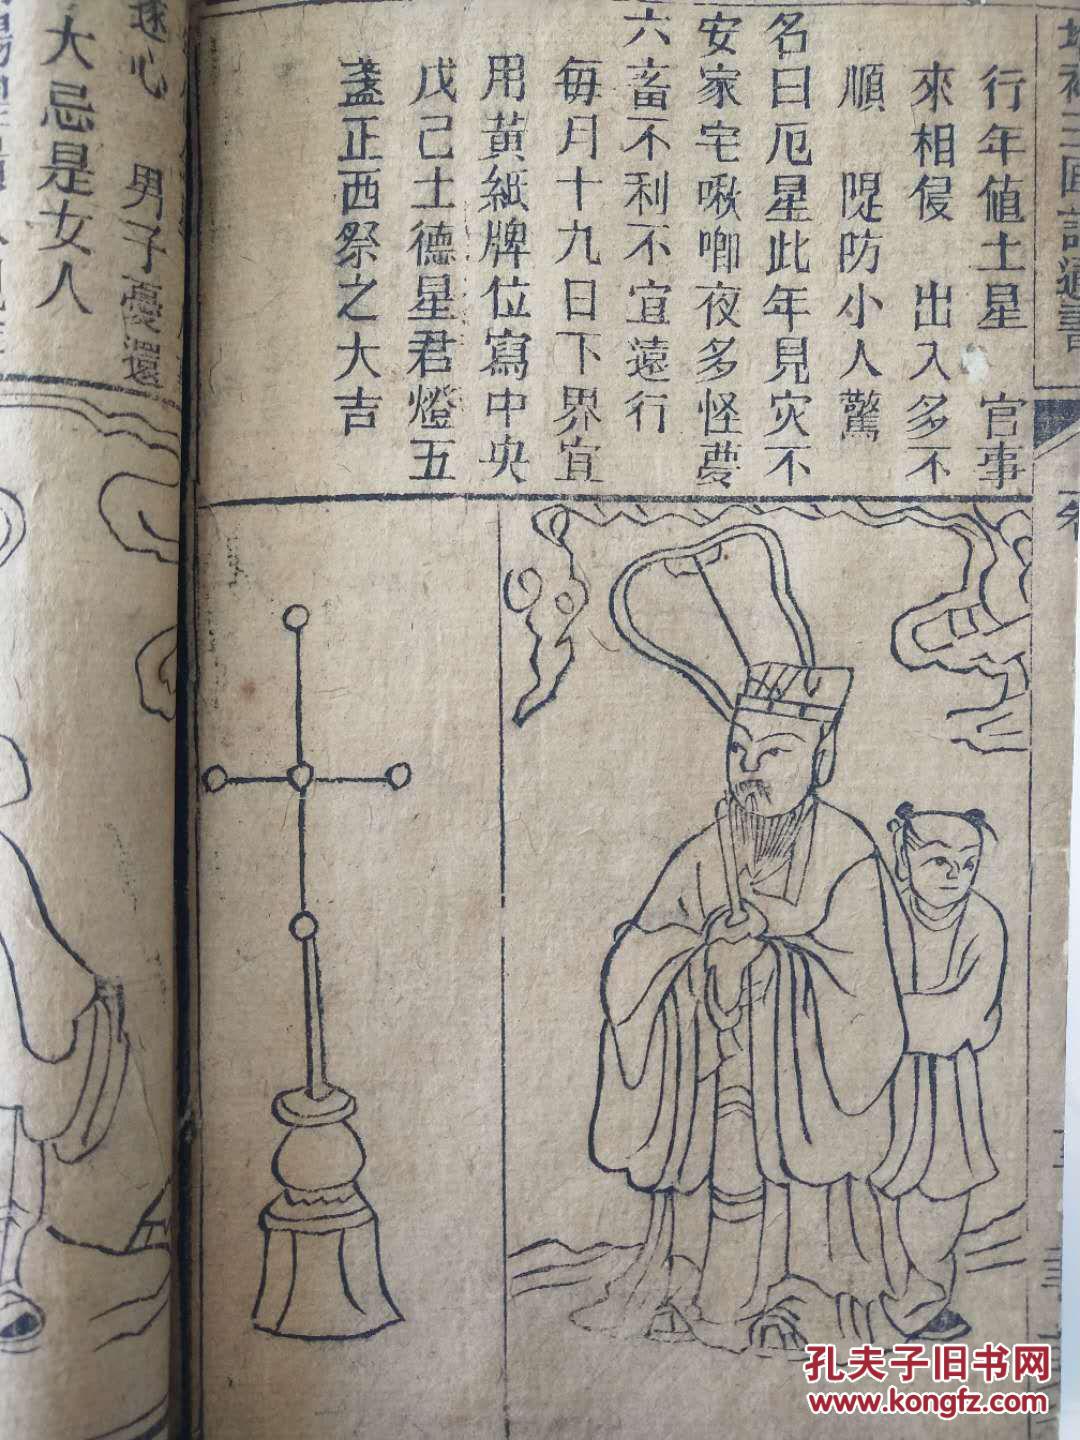 行年值土星　官事
來相侵　出入多不
順　隄防小人驚
名曰厄星此年見灾不
安家宅啾唧夜多怪夢
六畜不利不宜遠行
每月十九日下界宜
用黃紙牌位寫中央
戊己土德星君燈五
盞正西祭之大吉
遂心　男子憂還
大忌是女人
孔夫子旧书网
www.kongfz.com